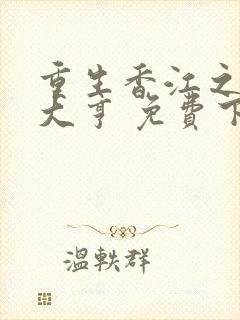 重生香江之
大亨 免費下
温軼群